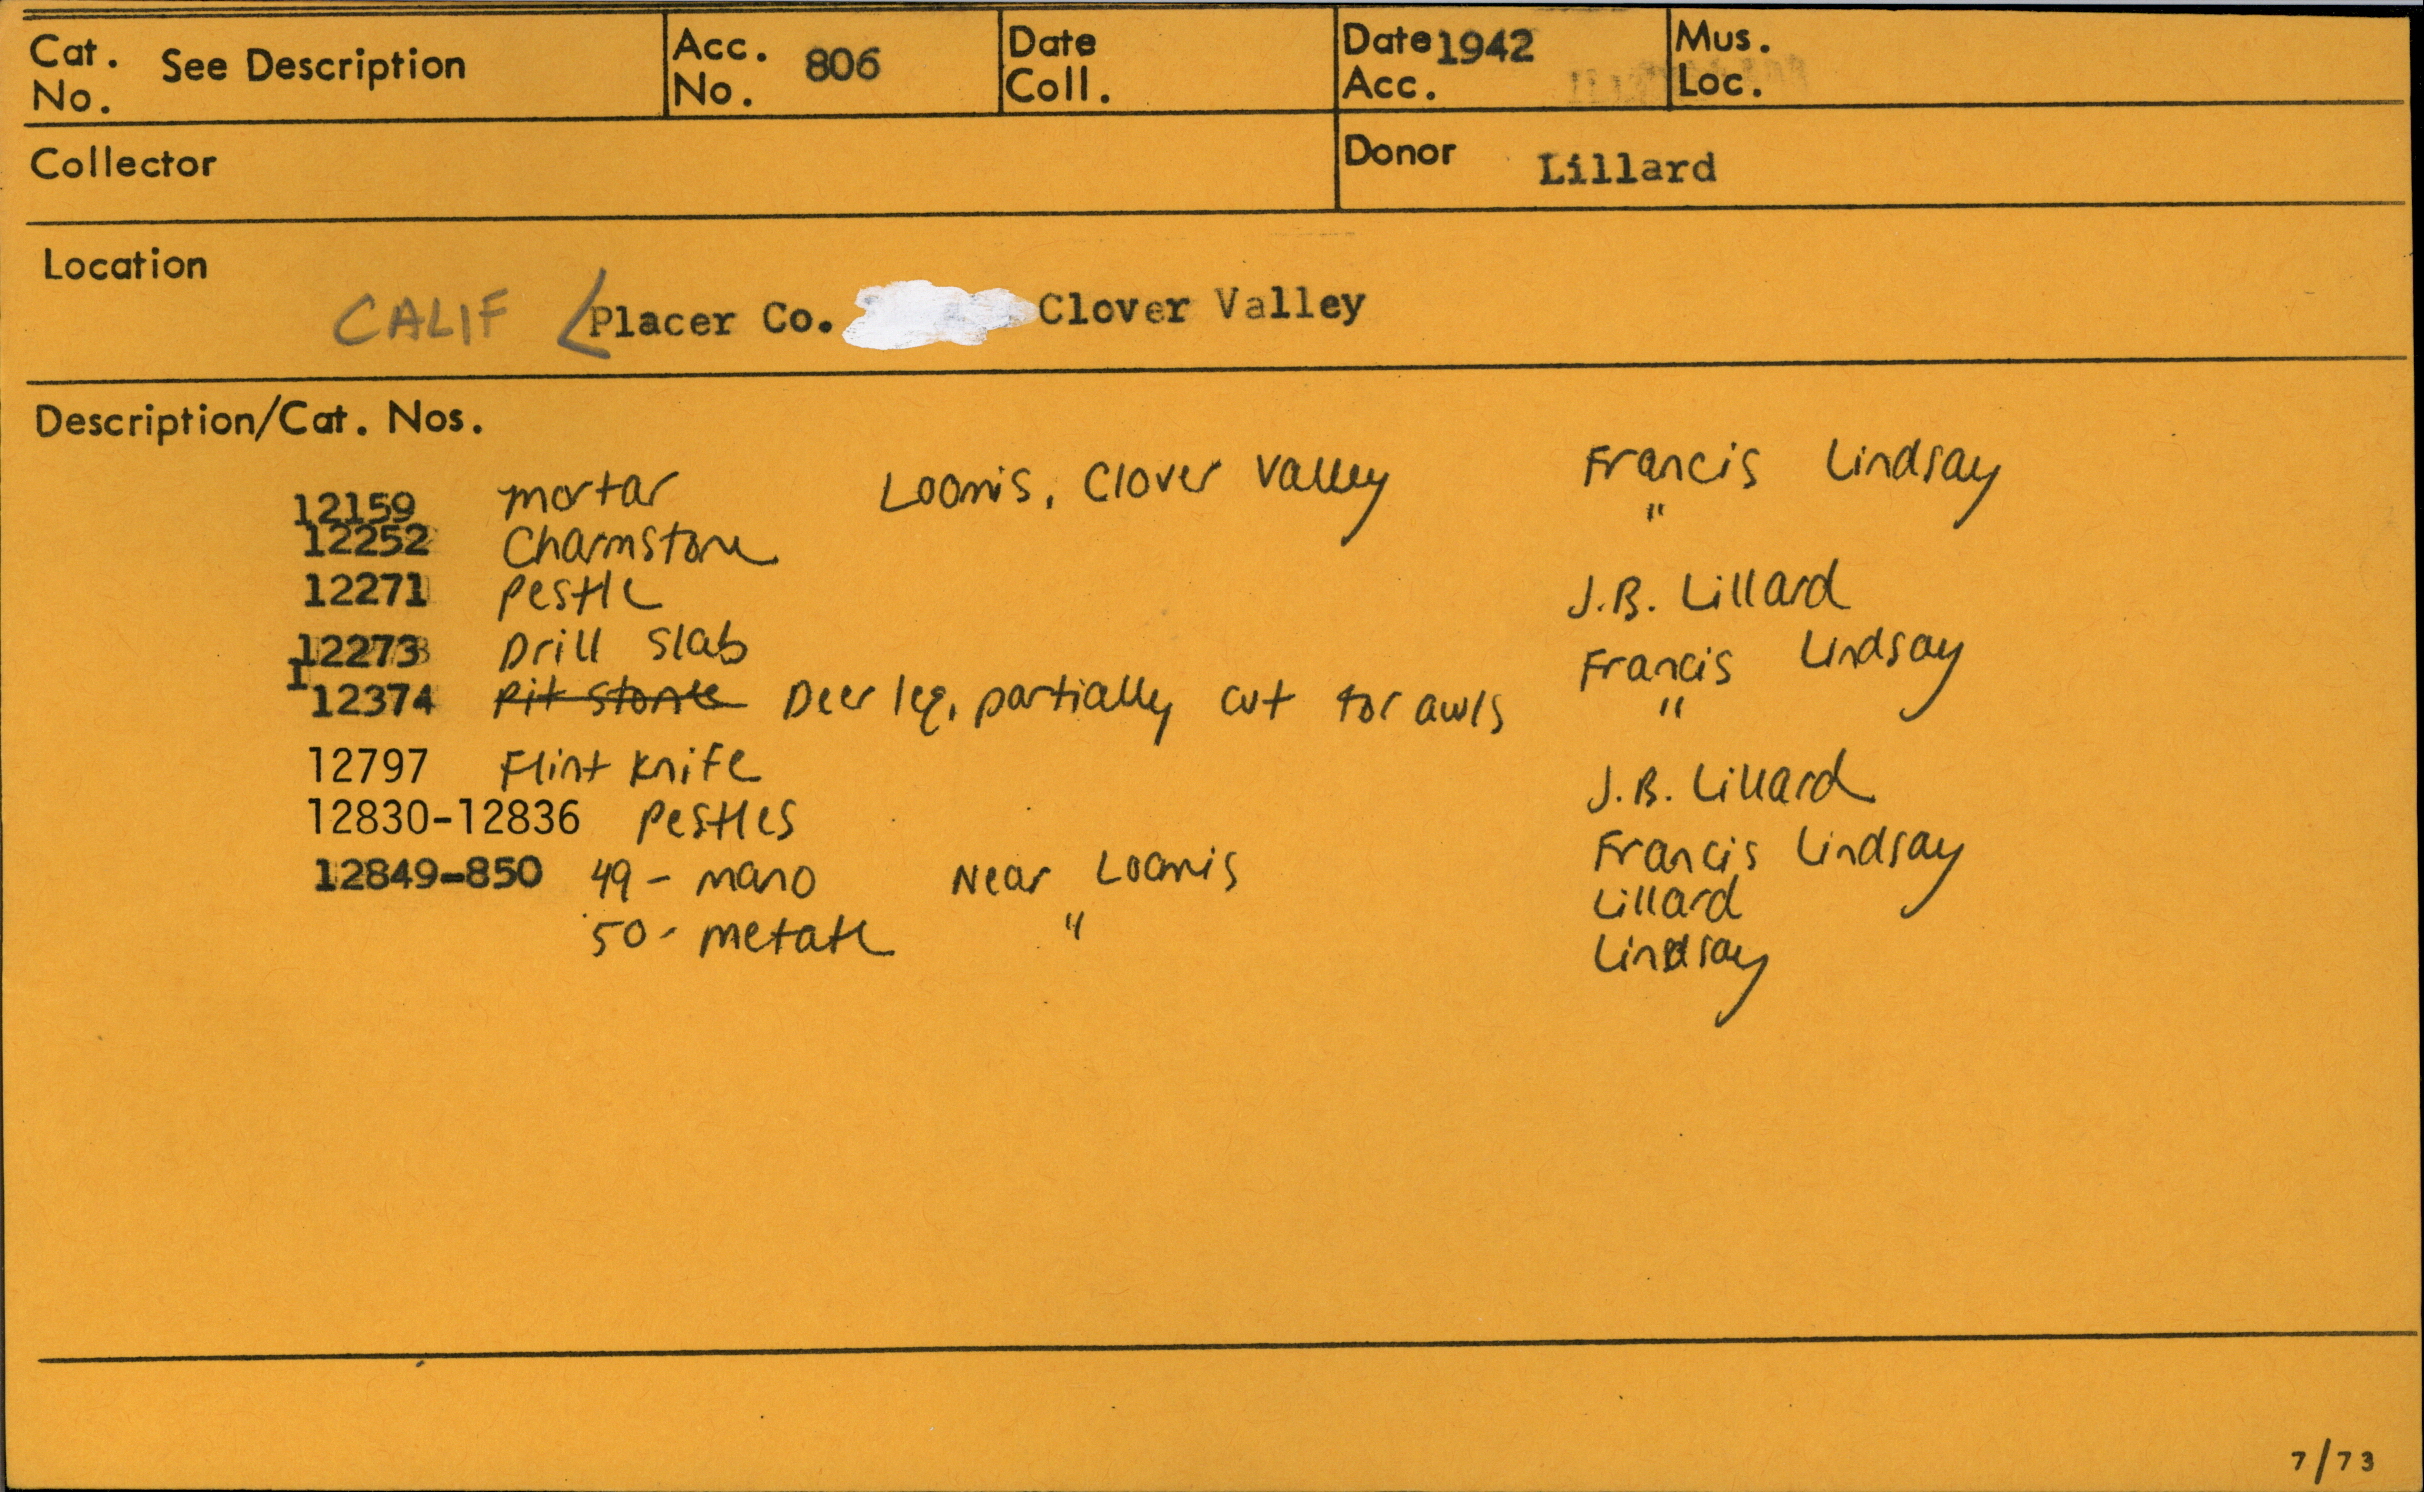 Cat. No. See Description Acc. No. 806 Date Coll. Date Acc. 1942 Mus. Loc.
Collector Donor Lillard
Location
CALIF < Placer Co. Clover Valley
Description/Cat. Nos.
12159 mortar Loomis, Clover Valley Francis Lindsay
12252 Charmstone "
12271 pestle J.B. Lillard
12273 Drill slab Francis Lindsay
12374 Pit stone Deer leg, partially cut for awls "
12797 Flint knife J.B. Lillard
12830-12836 pestles Francis Lindsay
12849-850 49 - mano Near Loomis Lillard
50 - metate " Lindsay
7/73